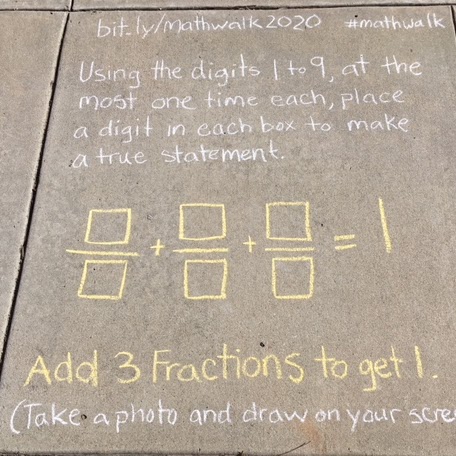 bit.ly/mathwalk2020 #mathwalk
Using the digits 1 to 9, at the
most one time each, place
a digit in each box to make
a true statement.
□/□ + □/□ + □/□ = 1
Add 3 Fractions to get 1.
(Take a photo and draw on your scre